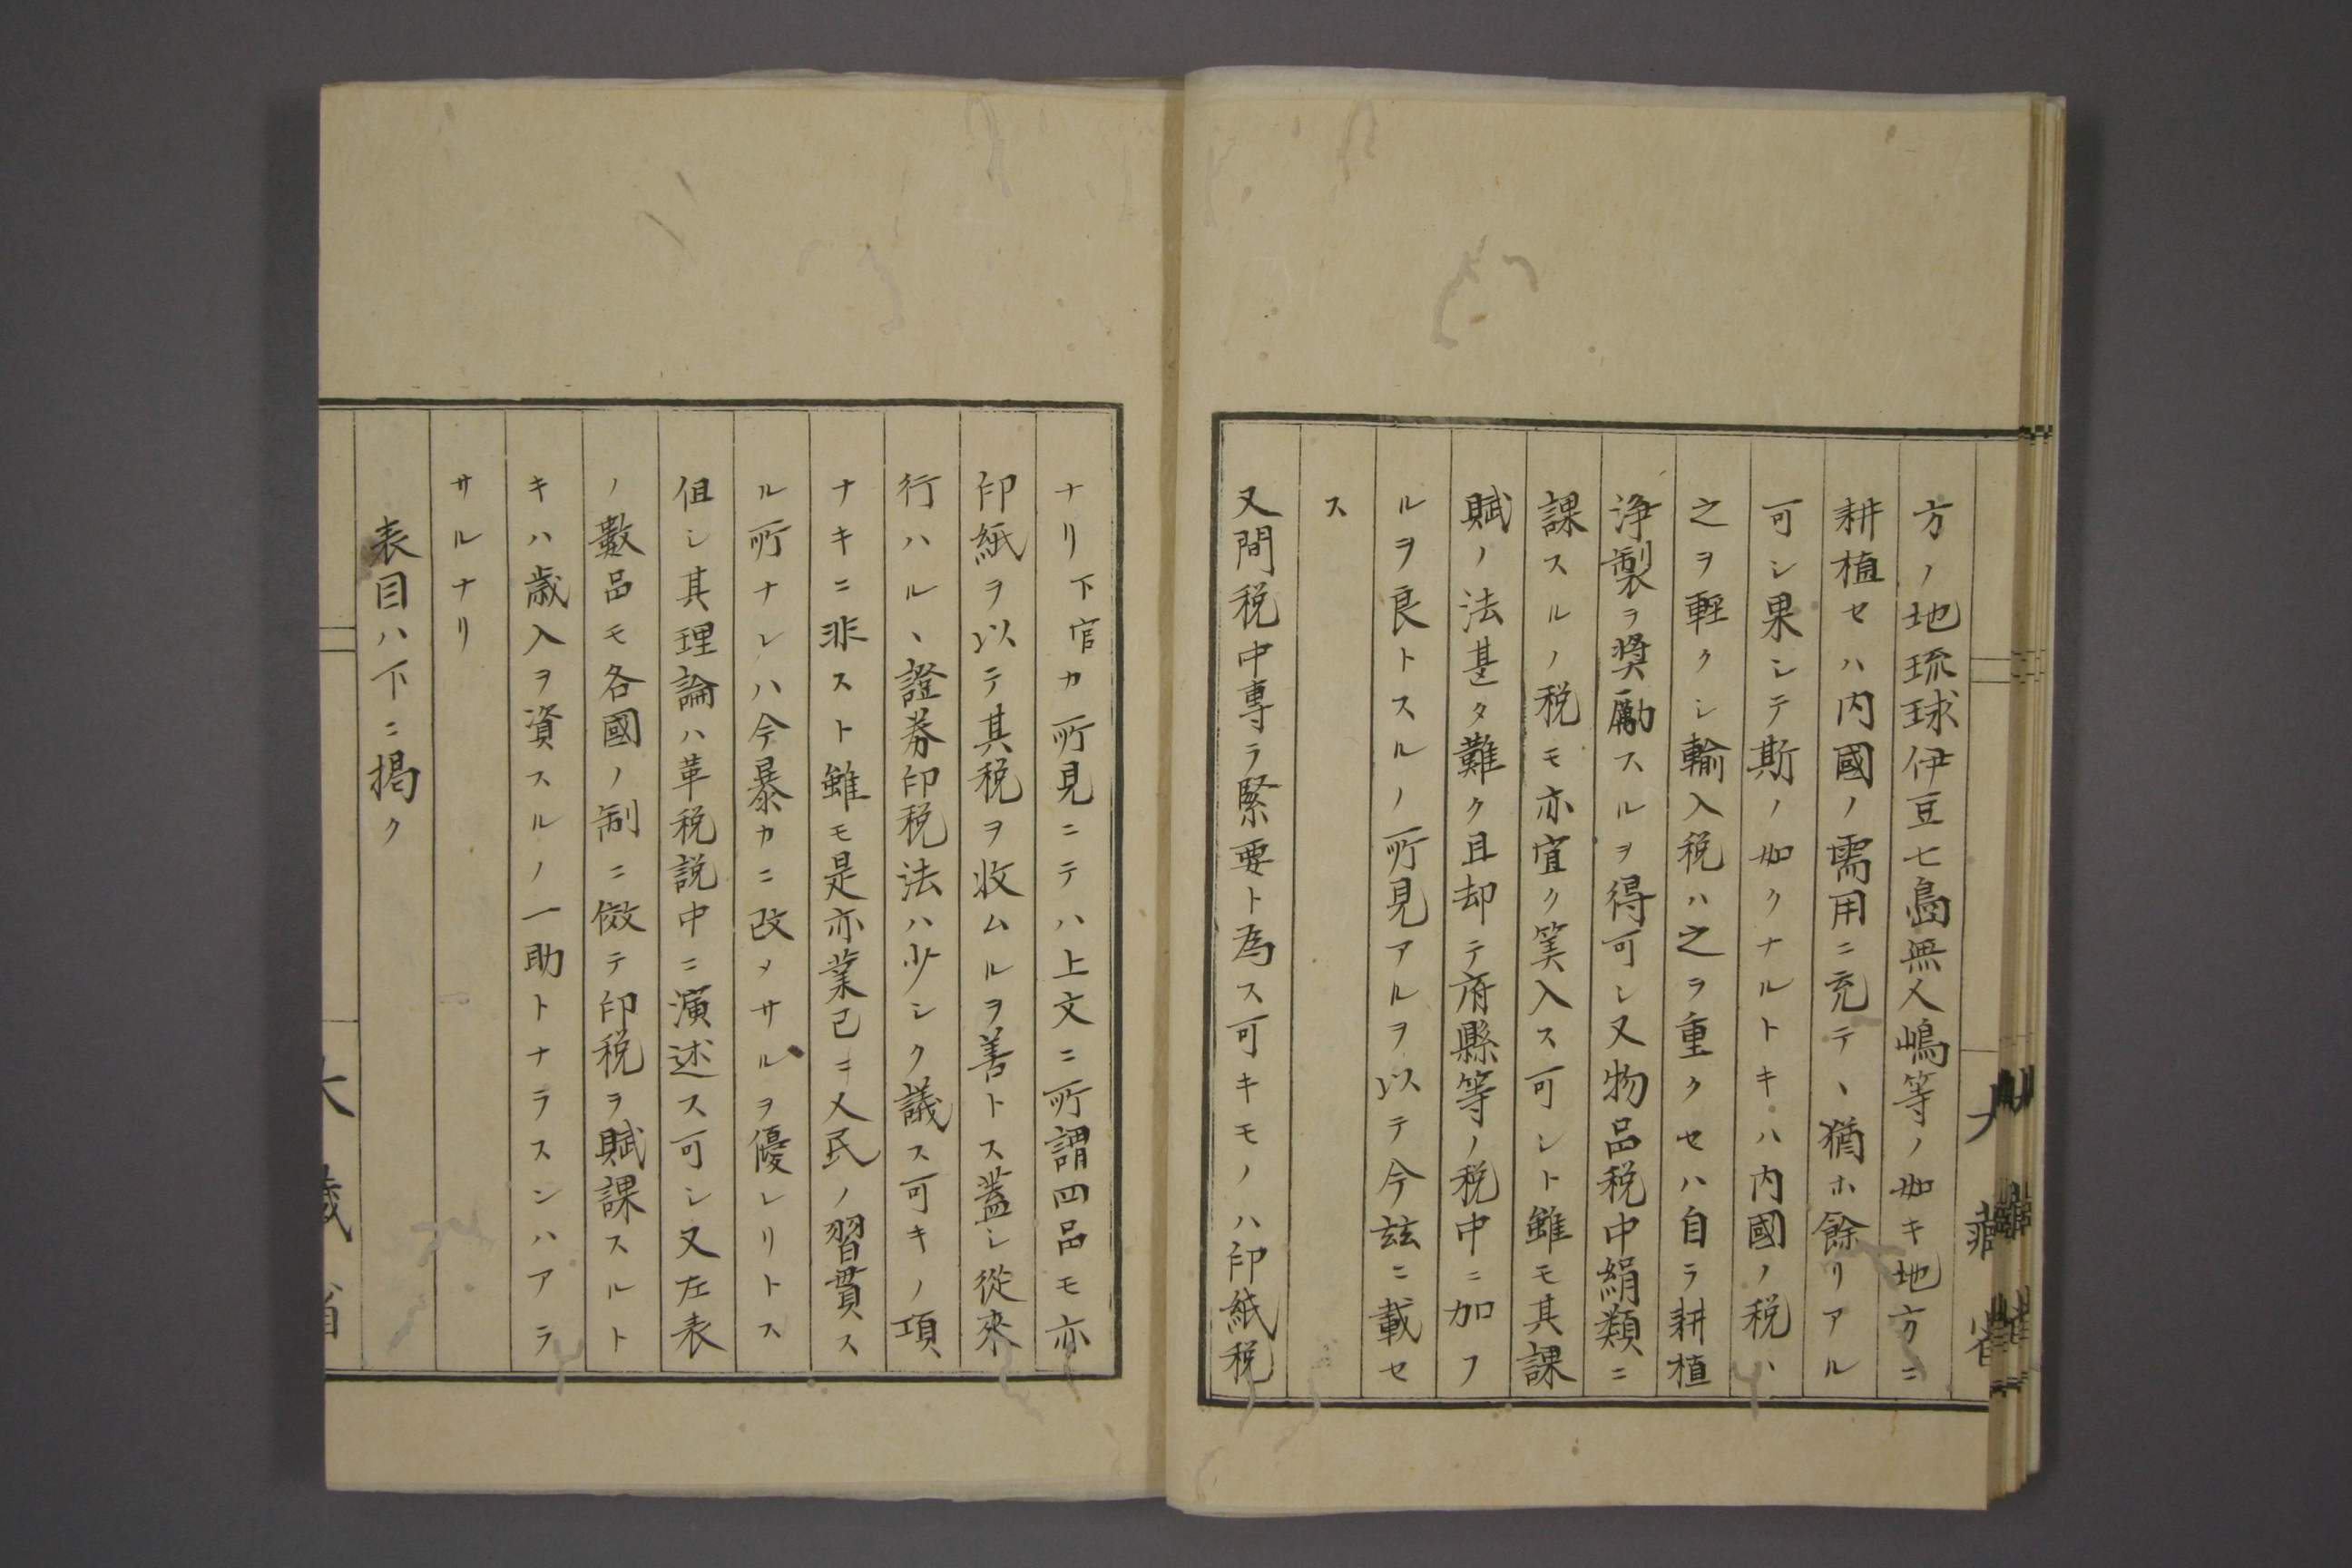 方ノ地琉球伊豆七島無人嶋等ノ如キ地方ニ
耕植セハ内國ノ需用ニ充テヽ猶ホ餘リアル
可シ果シテ斯ノ如クナルトキハ内國ノ税ハ
之ヲ軽クシ輸入税ハ之ヲ重クセハ自ラ耕植
浄製ヲ奨勵スルヲ得可シ又物品税中絹類ニ
課スルノ税モ亦宜ク筭入ス可シト雖モ其課
賦ノ法甚タ難ク且却テ府縣等ノ税中ニ加フ
ルヲ良トスルノ所見アルヲ以テ今茲ニ載セ
ス
又間税中専ラ緊要ト為ス可キモノハ印紙税
ナリ下官カ所見ニテハ上文ニ所謂四品モ亦
印紙ヲ以テ其税ヲ收ムルヲ善トス蓋シ從來
行ハルヽ證券印税法ハ少シク議ス可キノ項
ナキニ非スト雖モ是亦業已ニ人民ノ習貫ス
ル所ナレハ今暴カニ改メサルヲ優レリトス
但シ其理論ハ革税説中ニ演述ス可シ又左表
ノ數品モ各國ノ制ニ倣テ印税ヲ賦課スルト
キハ歳入ヲ資スルノ一助トナラスンハアラ
サルナリ
表目ハ下ニ掲ク